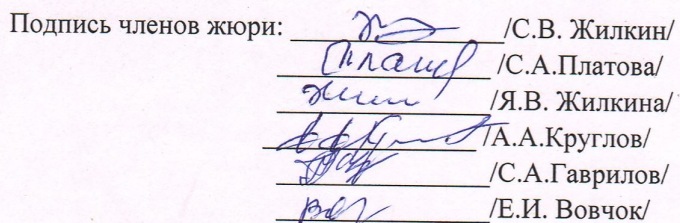 Подпись членов жюри: ________________/С.В. Жилкин/
________________/С.А.Платова/
________________/Я.В. Жилкина/
________________/А.А.Круглов/
________________/С.А.Гаврилов/
________________/Е.И. Вовчок/